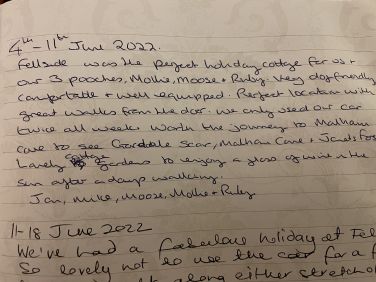 4th - 11th June 2022.
Fellside was the perfect holiday cottage for us +
our 3 pooches, Mollie, Moose + Ruby. Very dog friendly
comfortable + well equipped. Perfect location with
great walks from the door. We only used our car
twice all week. Worth the journey to Malham
Cove to see Gordale Scar, Malham Cove + Janets Fos
Lovely cottage gardens to enjoy a glass of wine in the
sun after a days walking.
Jan, Mike, Moose, Mollie + Ruby.
11-18 June 2022
We've had a fabulous holiday at Fel
So lovely not to use the car for a f
along either stretch o